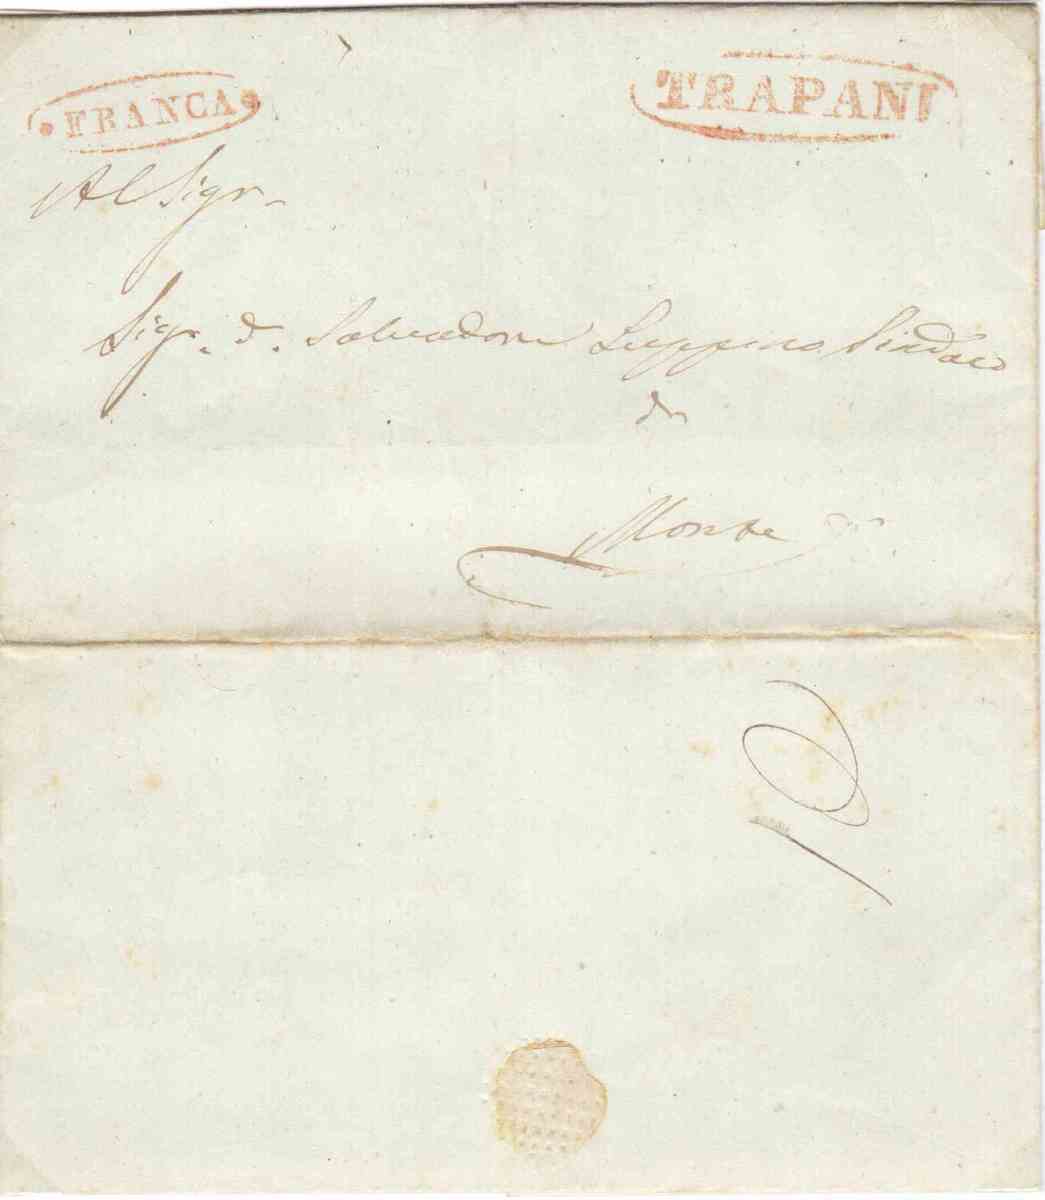 FRANCA
TRAPANI
Al Sigr.
Sigr. d. Salvadore Luppino Sindaco
di
Monte